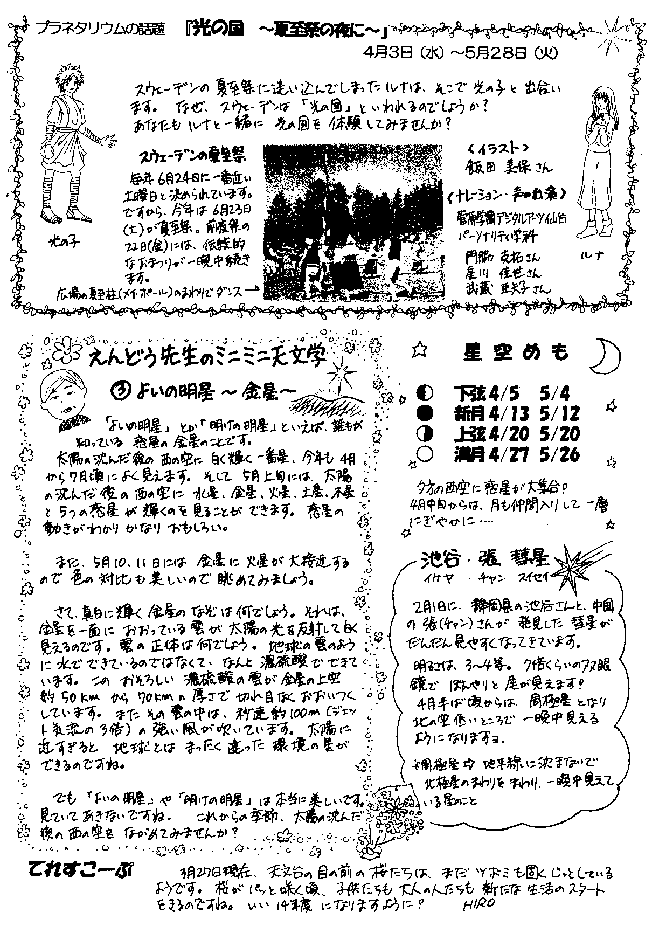 プラネタリウムの話題 『光の国 ～夏至祭の夜に～』
4月3日（水）～5月28日（火）
スウェーデンの夏至祭に迷い込んでしまったルナは、そこで光の子と出合い
ます。なぜ、スウェーデンは「光の国」といわれるのでしょうか？
あなたもルナと一緒に光の国を体験してみませんか？
光の子
スウェーデンの夏至祭
毎年6月24日に一番近い
土曜日と決められています。
ですから、今年は6月23日
(土)が夏至祭。前夜祭の
22日(金)には、伝統的
なお祭りが一晩中続き
ます。
広場の夏至柱(メイポール)のまわりでダンス→
<イラスト>
飯田 美保さん
<ナレーション・声の出演>
菅原学園デジタルアーツ仙台
パーソナリティ学科
門脇 さん
星川 佳世さん
武蔵 亜矢子さん
ルナ
えんどう先生のミニミニ天文学
③よいの明星 ～金星～
「よいの明星」とか「明けの明星」といえば、誰もが
知っている惑星の金星のことです。
太陽の沈んだ後の西の空に白く輝く一番星、今年も4月
から7月頃によく見えます。そして5月上旬には、太陽
の沈んだ後の西の空に水星、金星、火星、土星、木星
と5つの惑星が輝くのを見ることができます。惑星の
動きがわかりかなりおもしろい。
また、5月10、11日には金星に火星が大接近する
ので色の対比も美しいので眺めてみましょう。
さて、真白に輝く金星のなぞは何でしょう。それは、
金星を一面におおっている雲が太陽の光を反射して白く
見えるのです。雲の正体は何でしょう。地球の雲のよう
に水でできているのではなくて、なんと濃硫酸でできて
います。このおそろしい濃硫酸の雲が金星の上空
約50kmから70kmの厚さで切れ目なくおおいつく
しています。またその雲の中は、秒速約100m(ジェッ
ト気流の3倍)の強い風が吹いています。太陽に
近すぎると地球とはまったく違った環境の星が
できるのですね。
でも「よいの明星」や「明けの明星」は本当に美しいです。
見ていてあきないですね。これからの季節、太陽の沈んだ
後の西の空をながめてみませんか？
星空めも
下弦 4/5 5/4
新月 4/13 5/12
上弦 4/20 5/20
満月 4/27 5/26
夕方の西空に惑星が大集合？
4月中旬からは、月も仲間入りして一層
にぎやかに……
池谷・張 彗星
イケヤ ・ チャン スイセイ
2月1日に、静岡県の池谷さんと、中国
の張(チャン)さんが発見した彗星が
だんだん見やすくなってきています。
明るさは、3～4等。7倍くらいの双眼
鏡でぼんやりと尾が見えます？
4月半ば頃からは、周極星となり
北の空低いところで一晩中見える
ようになりますヨ。
*周極星は 地平線に沈まないで
北極星のまわりをまわり、一晩中見えて
いる星のこと
てれすこーぷ
3月27日現在、天文台の目の前の桜たちは、まだツボミも固くじっとしている
ようです。桜がパッと咲く頃、子供たちも大人の人たちも新たな生活のスタート
をきるのですね。いい14年度になりますように？ HIRO